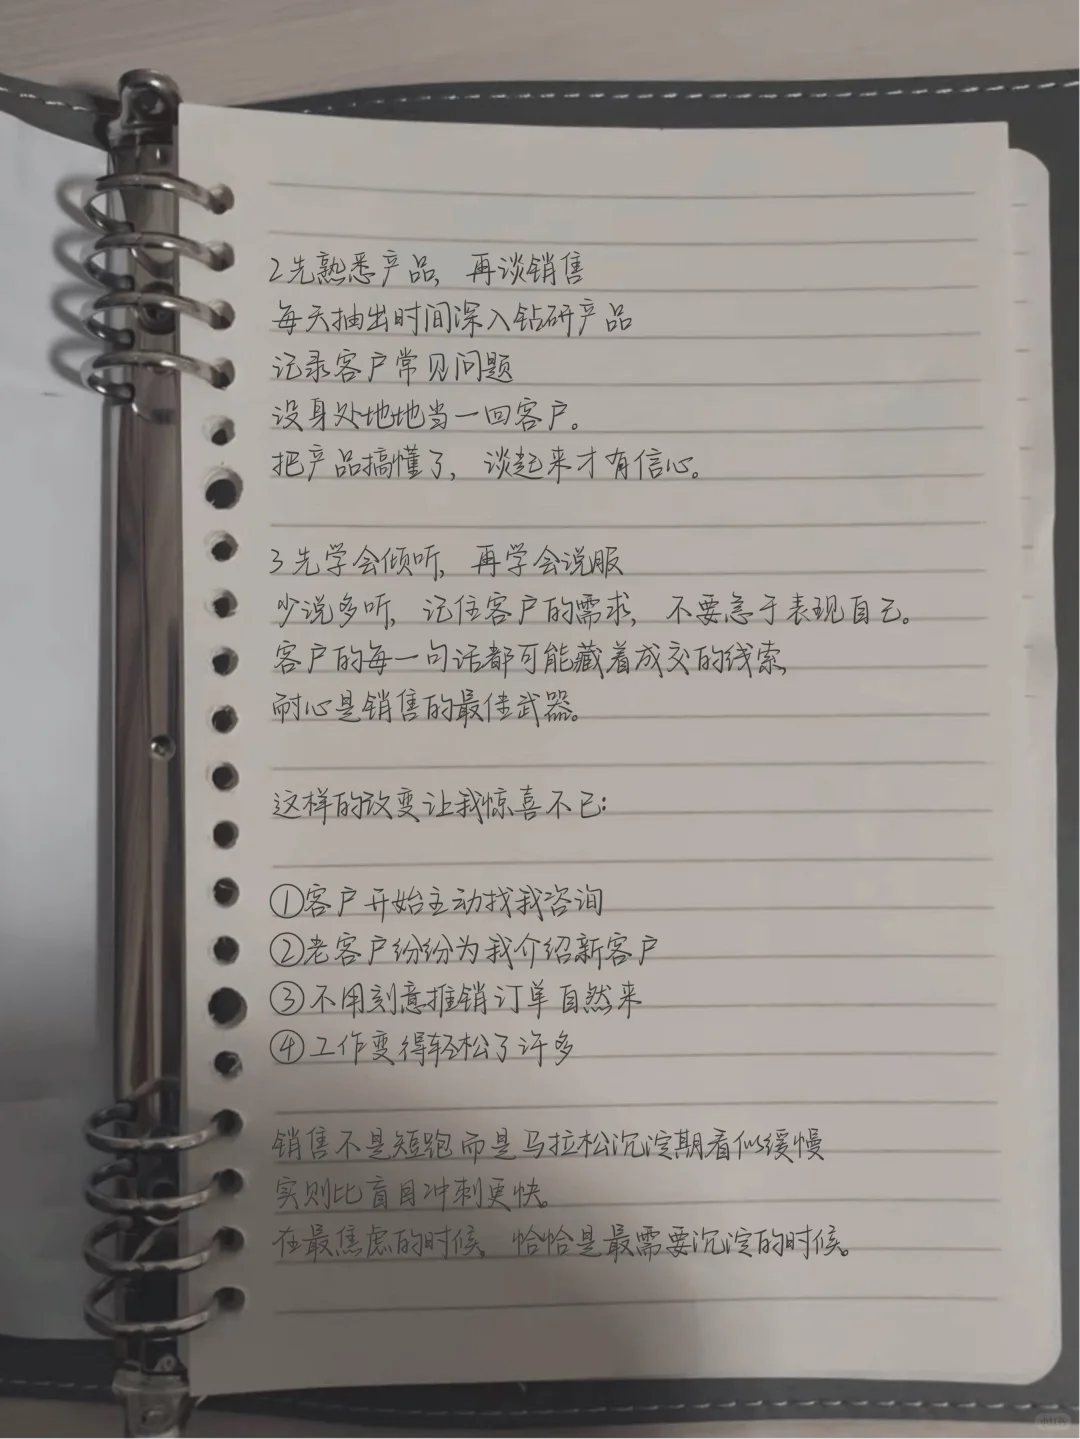 2先熟悉产品，再谈销售
每天抽出时间深入钻研产品
记录客户常见问题
设身处地地当一回客户。
把产品搞懂了，谈起来才有信心。
3先学会倾听，再学会说服
少说多听，记住客户的需求，不要急于表现自己。
客户的每一句话都可能藏着成交的线索，
耐心是销售的最佳武器。
这样的改变让我惊喜不已：
①客户开始主动找我咨询
②老客户纷纷为我介绍新客户
③不用刻意推销订单自然来
④工作变得轻松了许多
销售不是短跑而是马拉松沉淀期看似缓慢
实则比盲目冲刺更快。
在最焦虑的时候，恰恰是最需要沉淀的时候。